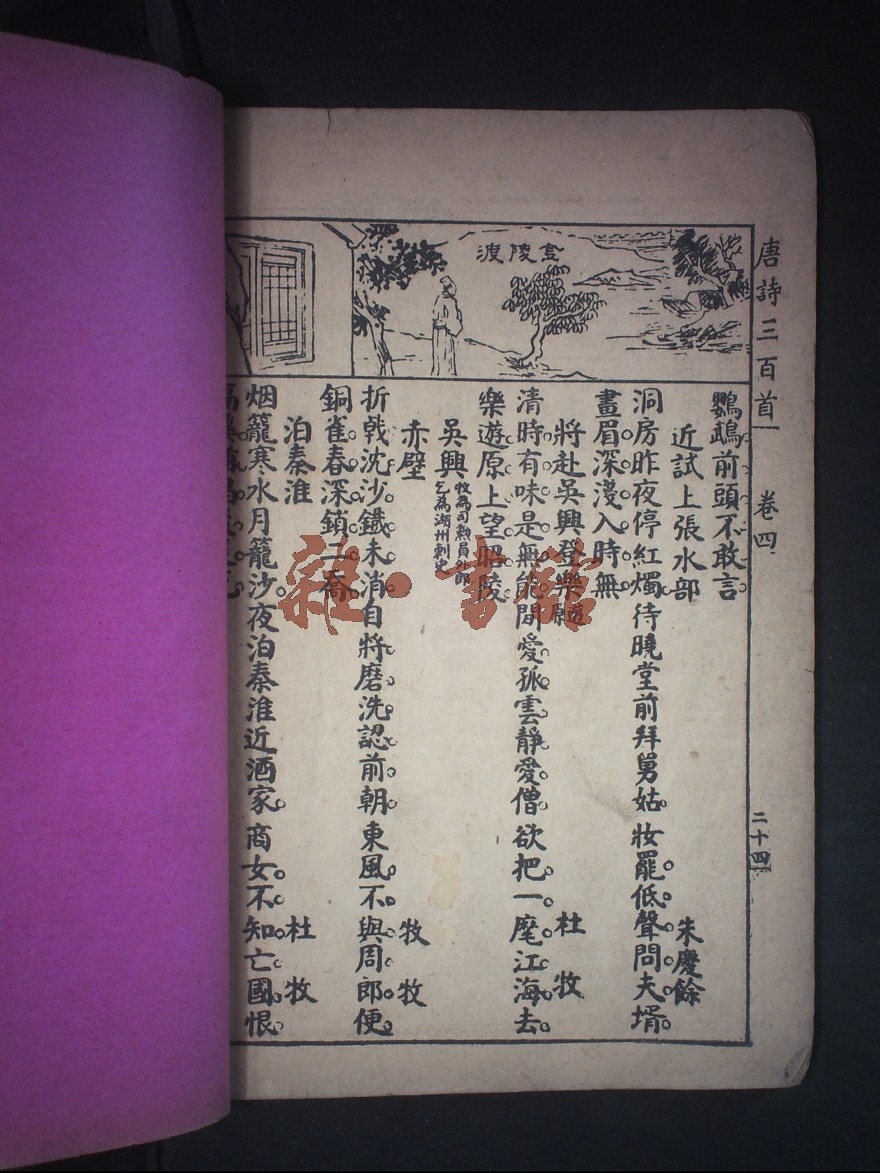 唐詩三百首 卷四 二十四
渡陵金
鸚鵡前頭不敢言
近試上張水部 朱慶餘
洞房昨夜停紅燭待曉堂前拜舅姑妝罷低聲問夫壻
畫眉深淺入時無
將赴吳興登樂遊原 杜牧
清時有味是無能閒愛孤雲靜愛僧欲把一麾江海去
樂遊原上望昭陵
吳興牧為司勲員外郎乞為湖州刺史
赤壁 牧牧
折戟沈沙鐵未消自將磨洗認前朝東風不與周郎便
銅雀春深鎖二喬
泊秦淮 杜牧
烟籠寒水月籠沙夜泊秦淮近酒家商女不知亡國恨
雜·書館